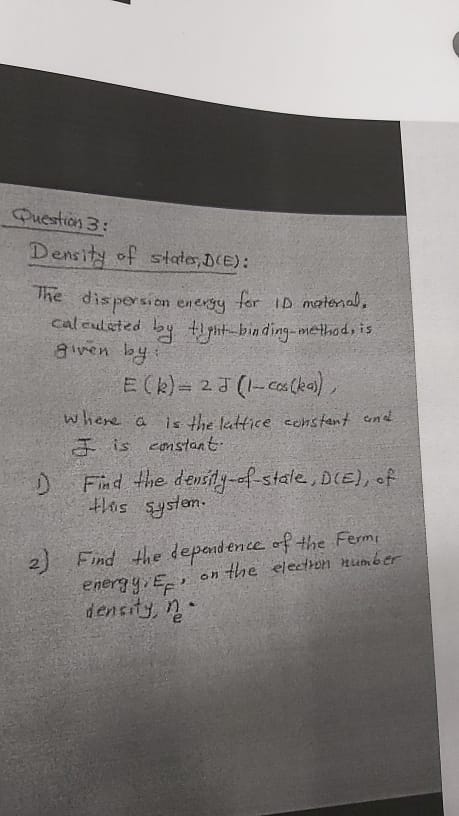 Question 3:
Density of states, D(E):
The dispersion energy for 1D material,
calculated by tight-binding-method, is
given by:
E(k) = 2J(1-cos(ka)),
where a is the lattice constant and
J is constant.
1) Find the density-of-state, D(E), of
this system.
2) Find the dependence of the Fermi
energy, E_F, on the electron number
density, n_e.